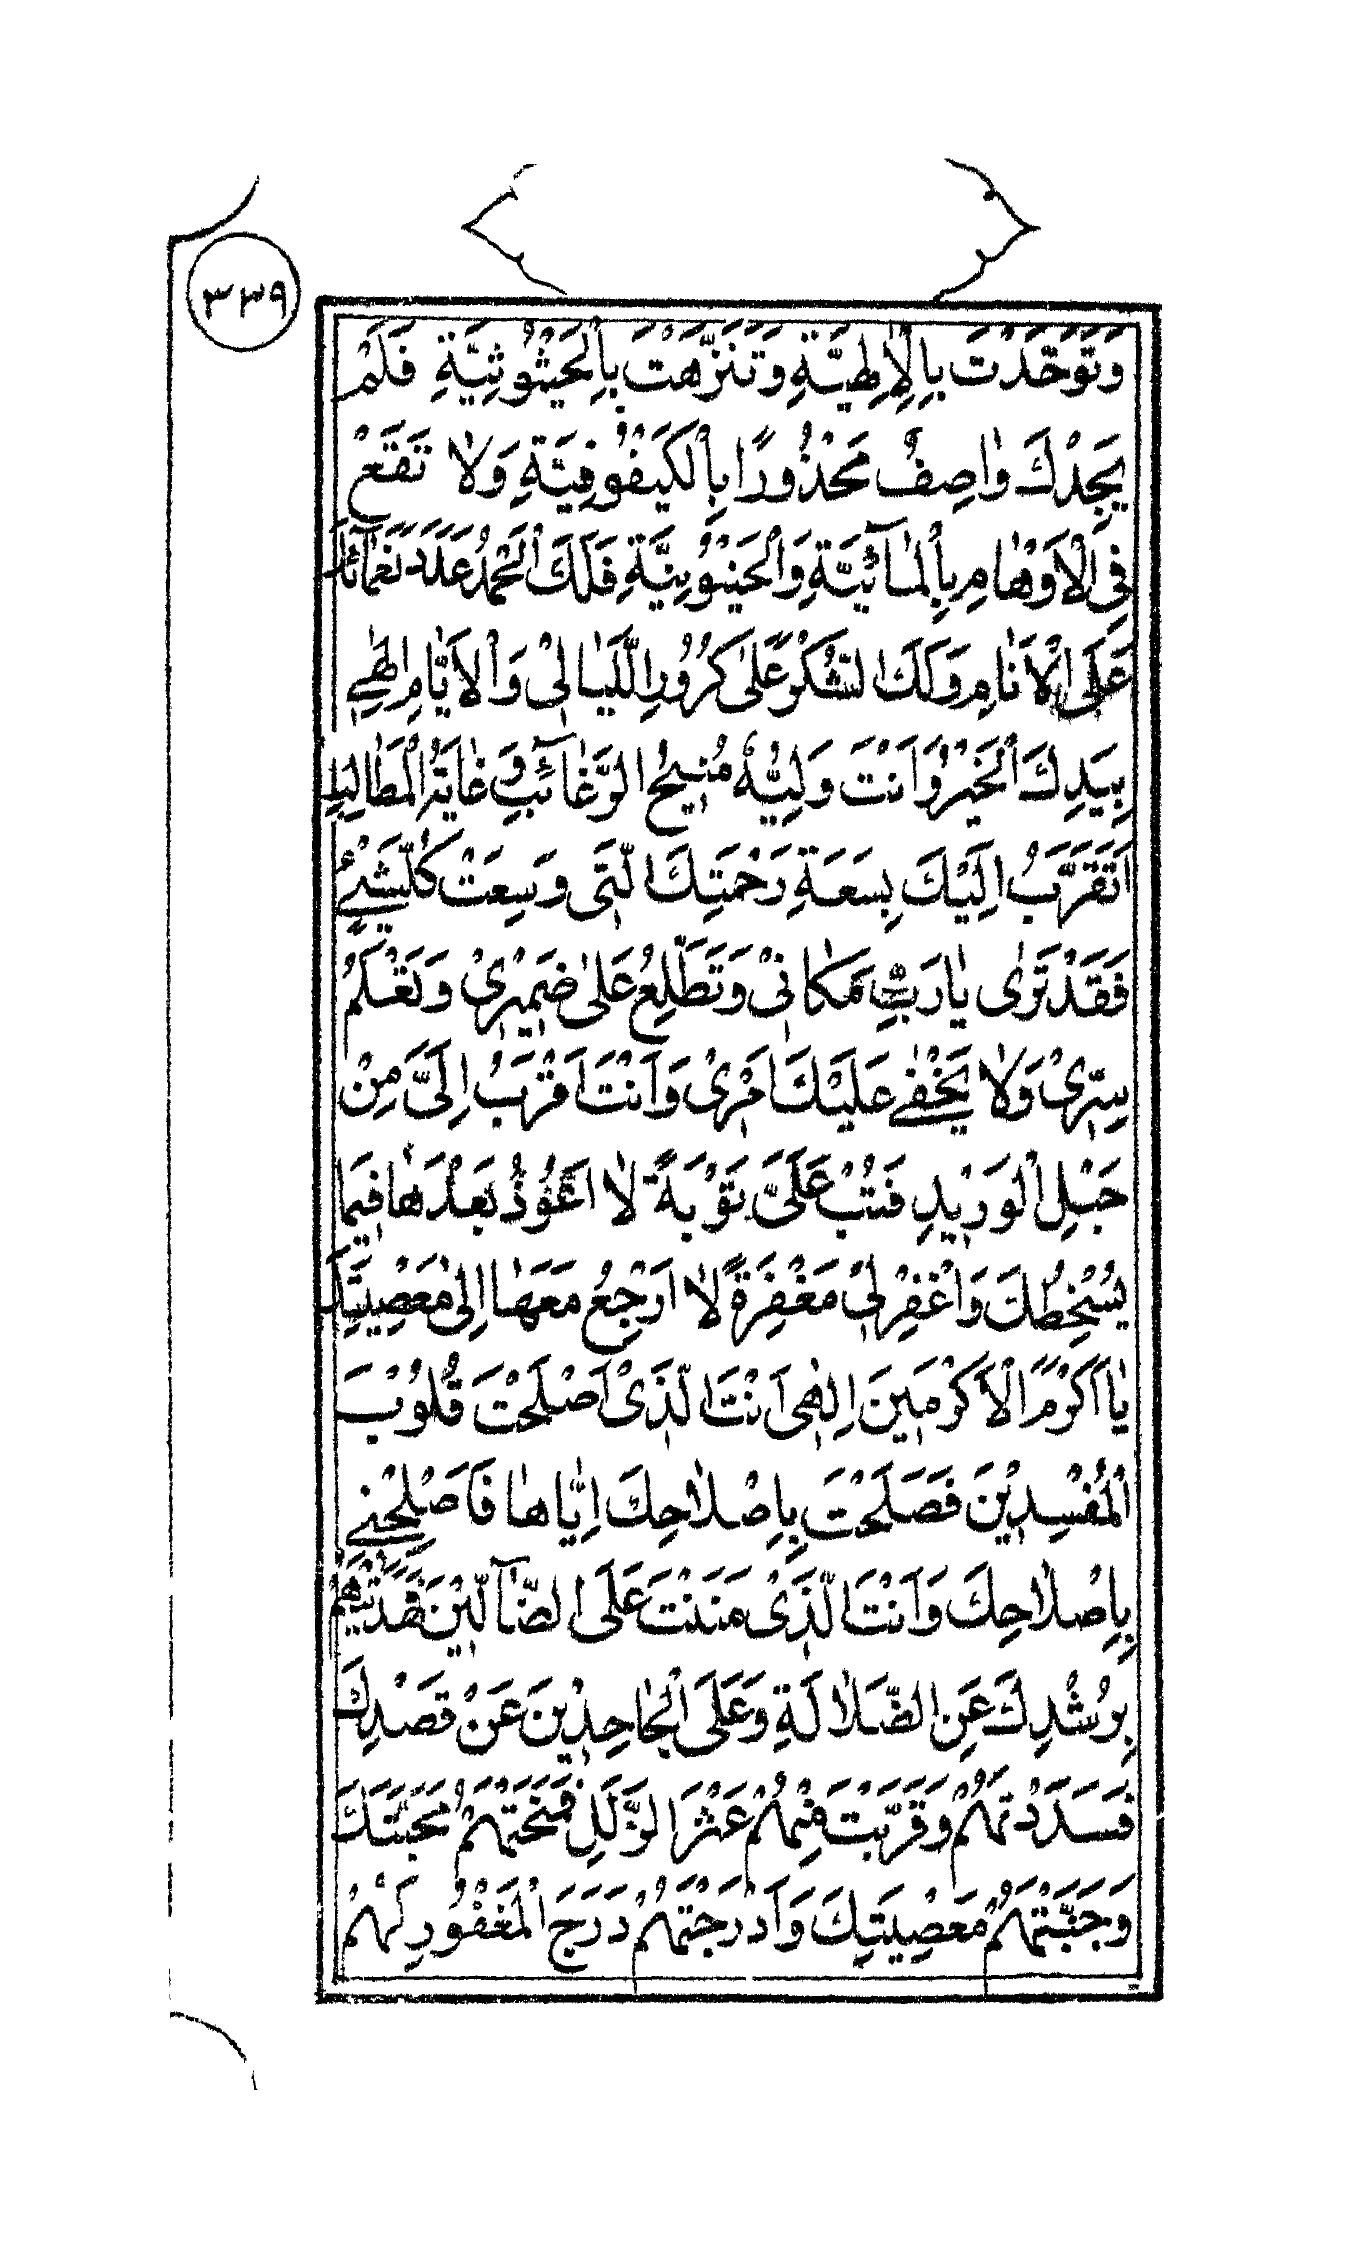 ٣٣٩
وَتَوَحَّدْتَ بِالْاِلٰهِيَّةِ وَتَنَزَّهْتَ بِالْحَيْثُوثِيَّةِ فَلَمْ
يَجِدْكَ وٰاصِفٌ مَحْذُورًا بِالْكَيْفُوفِيَّةِ وَلاٰ تَقَعْ
فِى الْاَوْهٰامِ بِالْمٰآئِيَّةِ وَالْحَيْنُوُنِيَّةِ فَلَكَ الْحَمْدُ عَدَدَ نَعْمٰآئِكَ
عَلَى الْاَنٰامِ وَلَكَ الشُّكْرُ عَلىٰ كُرُوُرِ اللَّيٰالىْ وَالْاَيّٰامِ اِلٰهىِ
بِيَدِكَ الْخَيْرُ وَاَنْتَ وَلِيُّهُ مُتيحُ الرَّغٰآئِبِ وَ غٰايَةُ الْمَطٰالِبِ
اَتَقَرَّبُ اِلَيْكَ بِسَعَةِ رَحْمَتِكَ الَّتى وَسِعَتْ كُلَّ شَىْءٍ
فَقَدْ تَرٰى يٰا رَبِّ مَكٰانىْ وَتَطَّلِعُ عَلىٰ ضَميٖرىْ وَتَعْلَمُ
سِرّىْ وَلاٰ يَخْفىٰ عَلَيْكَ اَمْرىْ وَاَنْتَ اَقْرَبُ اِلَىَّ مِنْ
حَبْلِ الْوَريْدِ فَتُبْ عَلَىَّ تَوْبَةً لاٰ اَعُوْدُ بَعْدَهٰا فيمٰا
يُسْخِطُكَ وَاغْفِرْ لىْ مَغْفِرَةً لاٰ اَرْجِعُ مَعَهٰا اِلىٰ مَعْصِيَتِكَ
يٰا اَكْرَمَ الْاَكْرَميٖنَ اِلٰهى اَنْتَ الَّذىْ اَصْلَحْتَ قُلُوْبَ
الْمُفْسِديْنَ فَصَلَحْتَ بِاِصْلاٰحِكَ اِيّٰاهٰا فَاَصْلِحْنىِ
بِاِصْلاٰحِكَ وَاَنْتَ الَّذىْ مَنَنْتَ عَلَى الضّٰآلّيْنَ فَهَدَيْتَهُمْ
بِرُشْدِكَ عَنِ الضَّلاٰلَةِ وَعَلَى الْجٰاحِديْنَ عَنْ قَصْدِكَ
فَسَدَدْتَهُمْ وَقَرَّبْتَ مِنْهُمْ عَثْرَ الزَّلَلِ فَمَنَحْتَهُمْ مَحَبَّتَكَ
وَجَنَّبْتَهُمْ مَعْصِيَتَكَ وَاَدْرَجْتَهُمْ دَرَجَ الْمَغْفُورِ لَهُمْ